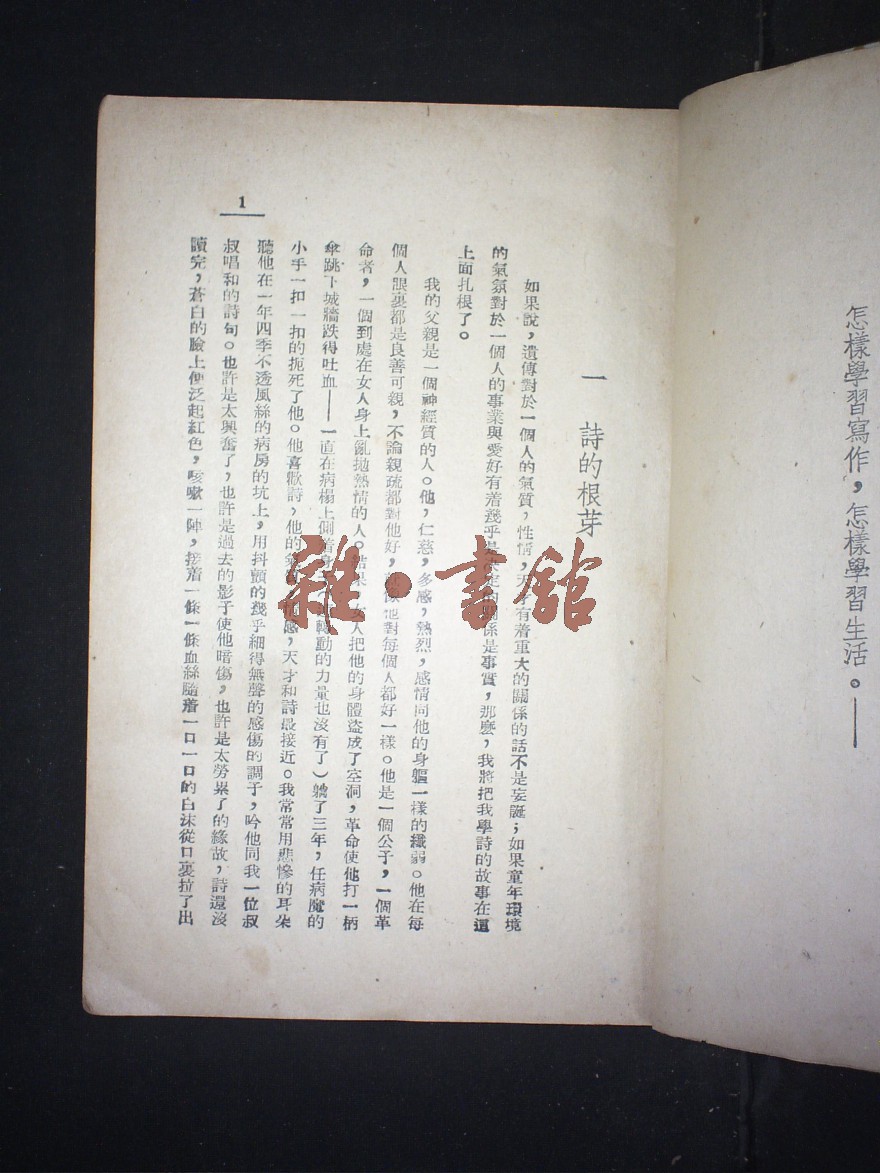 怎樣學習寫作，怎樣學習生活。——
一　詩的根芽
如果說，遺傳對於一個人的氣質，性情，天才有着重大的關係的話不是妄誕；如果童年環境
的氣氛對於一個人的事業與愛好有着幾乎是定的關係是事實，那麼，我將把我學詩的故事在這
上面扎根了。
我的父親是一個神經質的人。他，仁慈，多感，熱烈，感情同他的身軀一樣的纖弱。他在每
個人眼裏都是良善可親，不論親疏都對他好，像他對每個人都好一樣。他是一個公子，一個革
命者，一個到處在女人身上亂拋熱情的人。結果，女人把他的身體盜成了空洞，革命使他打一柄
傘跳下城牆跌得吐血——一直在病榻上側着身轉動的力量也沒有了）躺了三年，任病魔的
小手一扣一扣的扼死了他。他喜歡詩，他的感，天才和詩最接近。我常常用悲慘的耳朵
聽他在一年四季不透風絲的病房的坑上，用抖顫的幾乎細得無聲的感傷的調子，吟他同我一位叔
叔唱和的詩句。也許是太興奮了，也許是過去的影子使他暗傷，也許是太勞累了的緣故，詩還沒
讀完，蒼白的臉上便泛起紅色，咳嗽一陣，接着一條一條血絲隨着一口一口的白沫從口裏拉了出
1
雜·書館